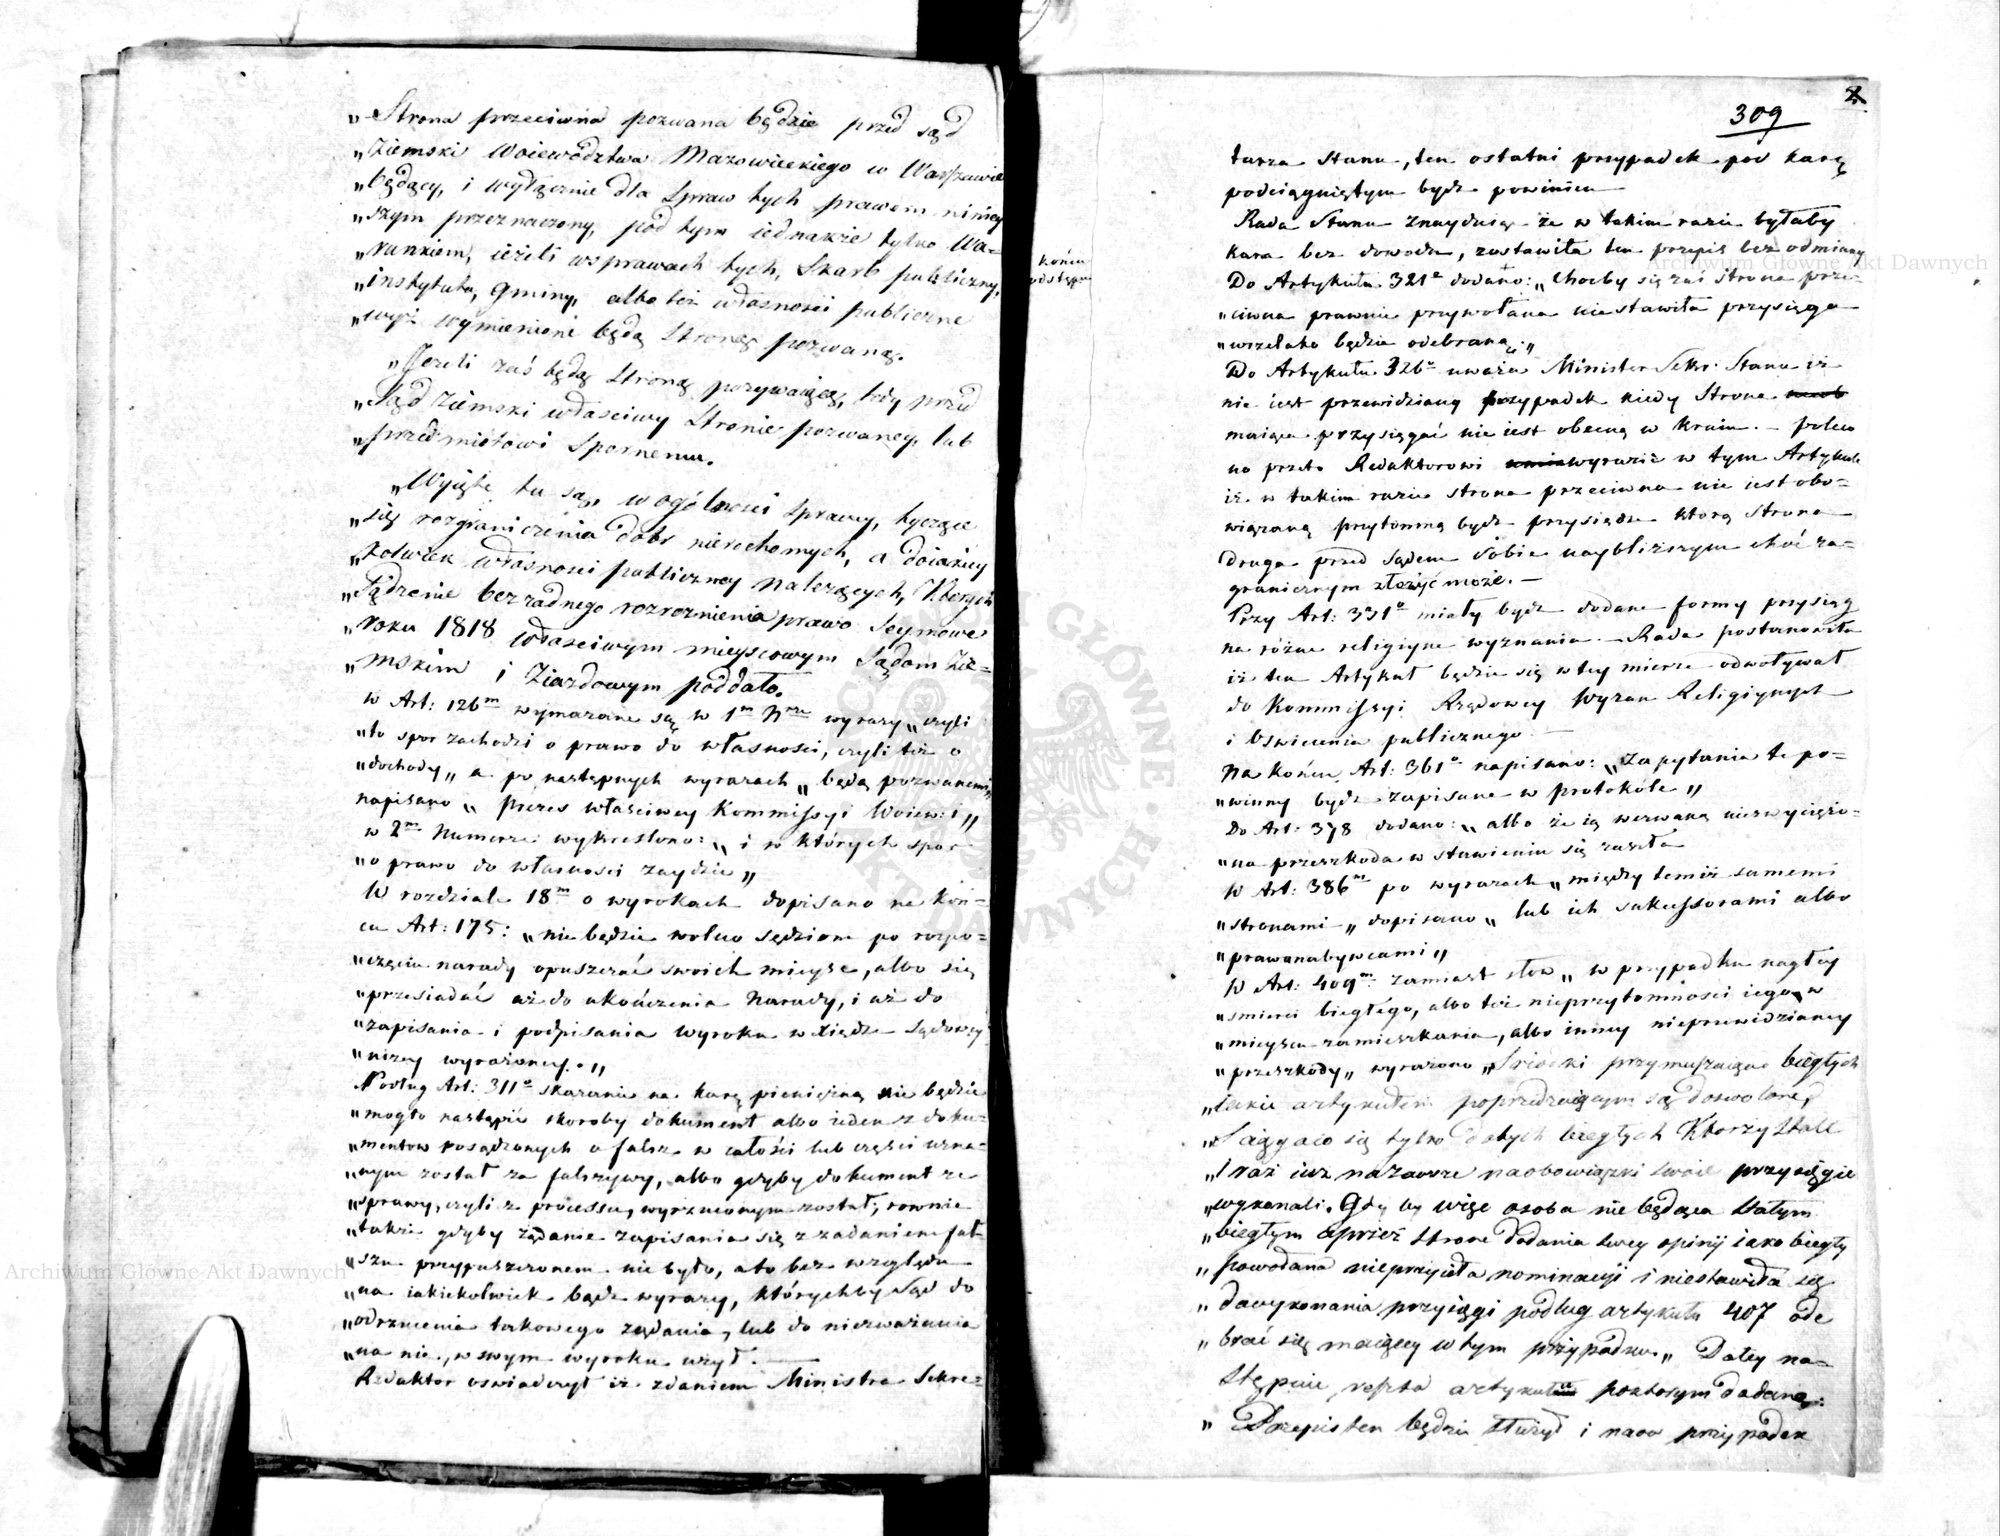 „Strona przeciwna pozwana będzie przed sąd
„Ziemski Woiewództwa Mazowieckiego w Warszawie
„będący, i wyłącznie dla Spraw tych prawem niniey
„szym przeznaczony, pod tym iednakże tylko Wa-
„runkiem, ieżeli w sprawach tych, Skarb publiczny,
„instytuta, Gminy, albo też własności publiczne
„wyż wymienione będą Stroną pozwaną.
„Jeżeli zaś będą Stroną pozywaiącą, tedy przed
„Sąd Ziemski właściwy Stronie pozwaney, lub
„przedmiotowi Spornemu.
„Wyięte tu są, w ogólności Sprawy, tyczące
„się rozgraniczenia dóbr nieruchomych, a do iakiey
„kolwiek własności publiczney należących, których
„Sądzenie bez żadnego rozróżnienia prawo Seymowe
„roku 1818 właściwym mieyscowym Sądom Zie-
„mskim i Ziazdowym poddało.
w Art: 126m wymazane są w 1m Nrze wyrazy „czyli
„to spor zachodzi o prawo do własności, czyli też o
„dochody„ a po następnych wyrazach „będą pozwanemi„
napisano „przez właściwey Kommissyi Woiew:i„
w 2m Numerze wykreślono: „i w których spor
„o prawo do własności zaydzie„
W rozdziale 18m o wyrokach dopisano na koń-
cu Art: 175: „nie będzie wolno sędziom po rozpo-
„częciu narady opuszczać swoich mieysc, albo się
„przesiadać aż do ukończenia Narady, i aż do
„zapisania i podpisania wyroku w xiędze Sądowey
„niżey wyrażoney.„
Podług Art: 311o skazanie na karę pieniężną nie będzie
„mogło nastąpić skoroby dokument albo ieden z doku-
„mentow posądzonych o fałsz w całości lub części uzna-
„nym został za fałszywy, albo gdyby dokument ze
„sprawy, czyli z processu, wyrzuconym został; rownie
„także gdyby żądanie zapisania się z zadaniem fał-
„szu przypuszczonem nie było, a to bez względu
„na iakiekolwiek bądź wyrazy, którychby Sąd do
„odrzucenia takowego żądania, lub do niezważania
„na nie, w swym wyroku użył.
Redaktor oświadczył iż zdaniem Ministra Sekre-
końcu
odstępu
2
309
tarza Stanu, ten ostatni przypadek pod karę
podciągniętym bydź powinien
Rada Stanu znayduiąc że w takim razie byłaby
kara bez dowodu, zostawiła ten przepis bez odmiany
Do Artykułu 321o dodano: „Choćby się zaś Strona prze-
„ciwna prawnie przywołana nie stawiła przysięga
„wszelako będzie odebraną„
Do Artykułu 326o uważa Minister Sekr: Stanu iż
nie iest przewidziany przypadek kiedy Strona
maiąca przysięgać nie iest obecną w Kraiu. – Poleco
no przeto Redaktorowi wyrazić w tym Artykule
iż w takim razie strona przeciwna nie iest obo-
wiązaną przytomną bydź przysiędze którą Strona
druga przed Sądem Sobie naybliższym choć za-
granicznym złożyć może. –
Przy Art: 331o miały bydź dodane formy przysiąg
na różne religiyne wyznania. – Rada postanowiła
iż ten Artykuł będzie się w tey mierze odwoływał
do Kommissyi Rządowey Wyznań Religiynych
i Oświecenia publicznego. –
Na końcu Art: 361o napisano: „Zapytania te po-
„winny bydź zapisane w protokóle„
Do Art: 378 dodano: „albo że ią wezwaną niezwycięzo-
„na przeszkoda w stawieniu się zaszła
W Art: 386m po wyrazach „między temiż samemi
„stronami„ dopisano „lub ich sukcessorami albo
„prawonabywcami„
W Art: 409m zamiast słow „w przypadku nagłey
„śmierci biegłego, albo też nieprzytomności iego w
„mieyscu zamieszkania, albo inney nieprzewidzianey
„przeszkody„ wyrażono „Srzodki przymuszaiące biegłych
„iakie artykułem poprzedzaiącym są dozwolone,
„Sciągaią się tylko do tych biegłych którzy Stale
„i raz iuż na zawsze na obowiązki swoie przysięgę
„wykonali. Gdy by więc osoba nie będąca Stałym
„biegłym przez Strone do dania swey opinij iako biegły
„powołana nieprzyięła nominacyi i niestawiła się
„do wykonania przysięgi podług artykułu 407 ode
„brać się maiącey w tym przypadku„ Daley na-
stępuie reszta artykułu poczem dodano:
„Przepis ten będzie służył i na ow przypadek